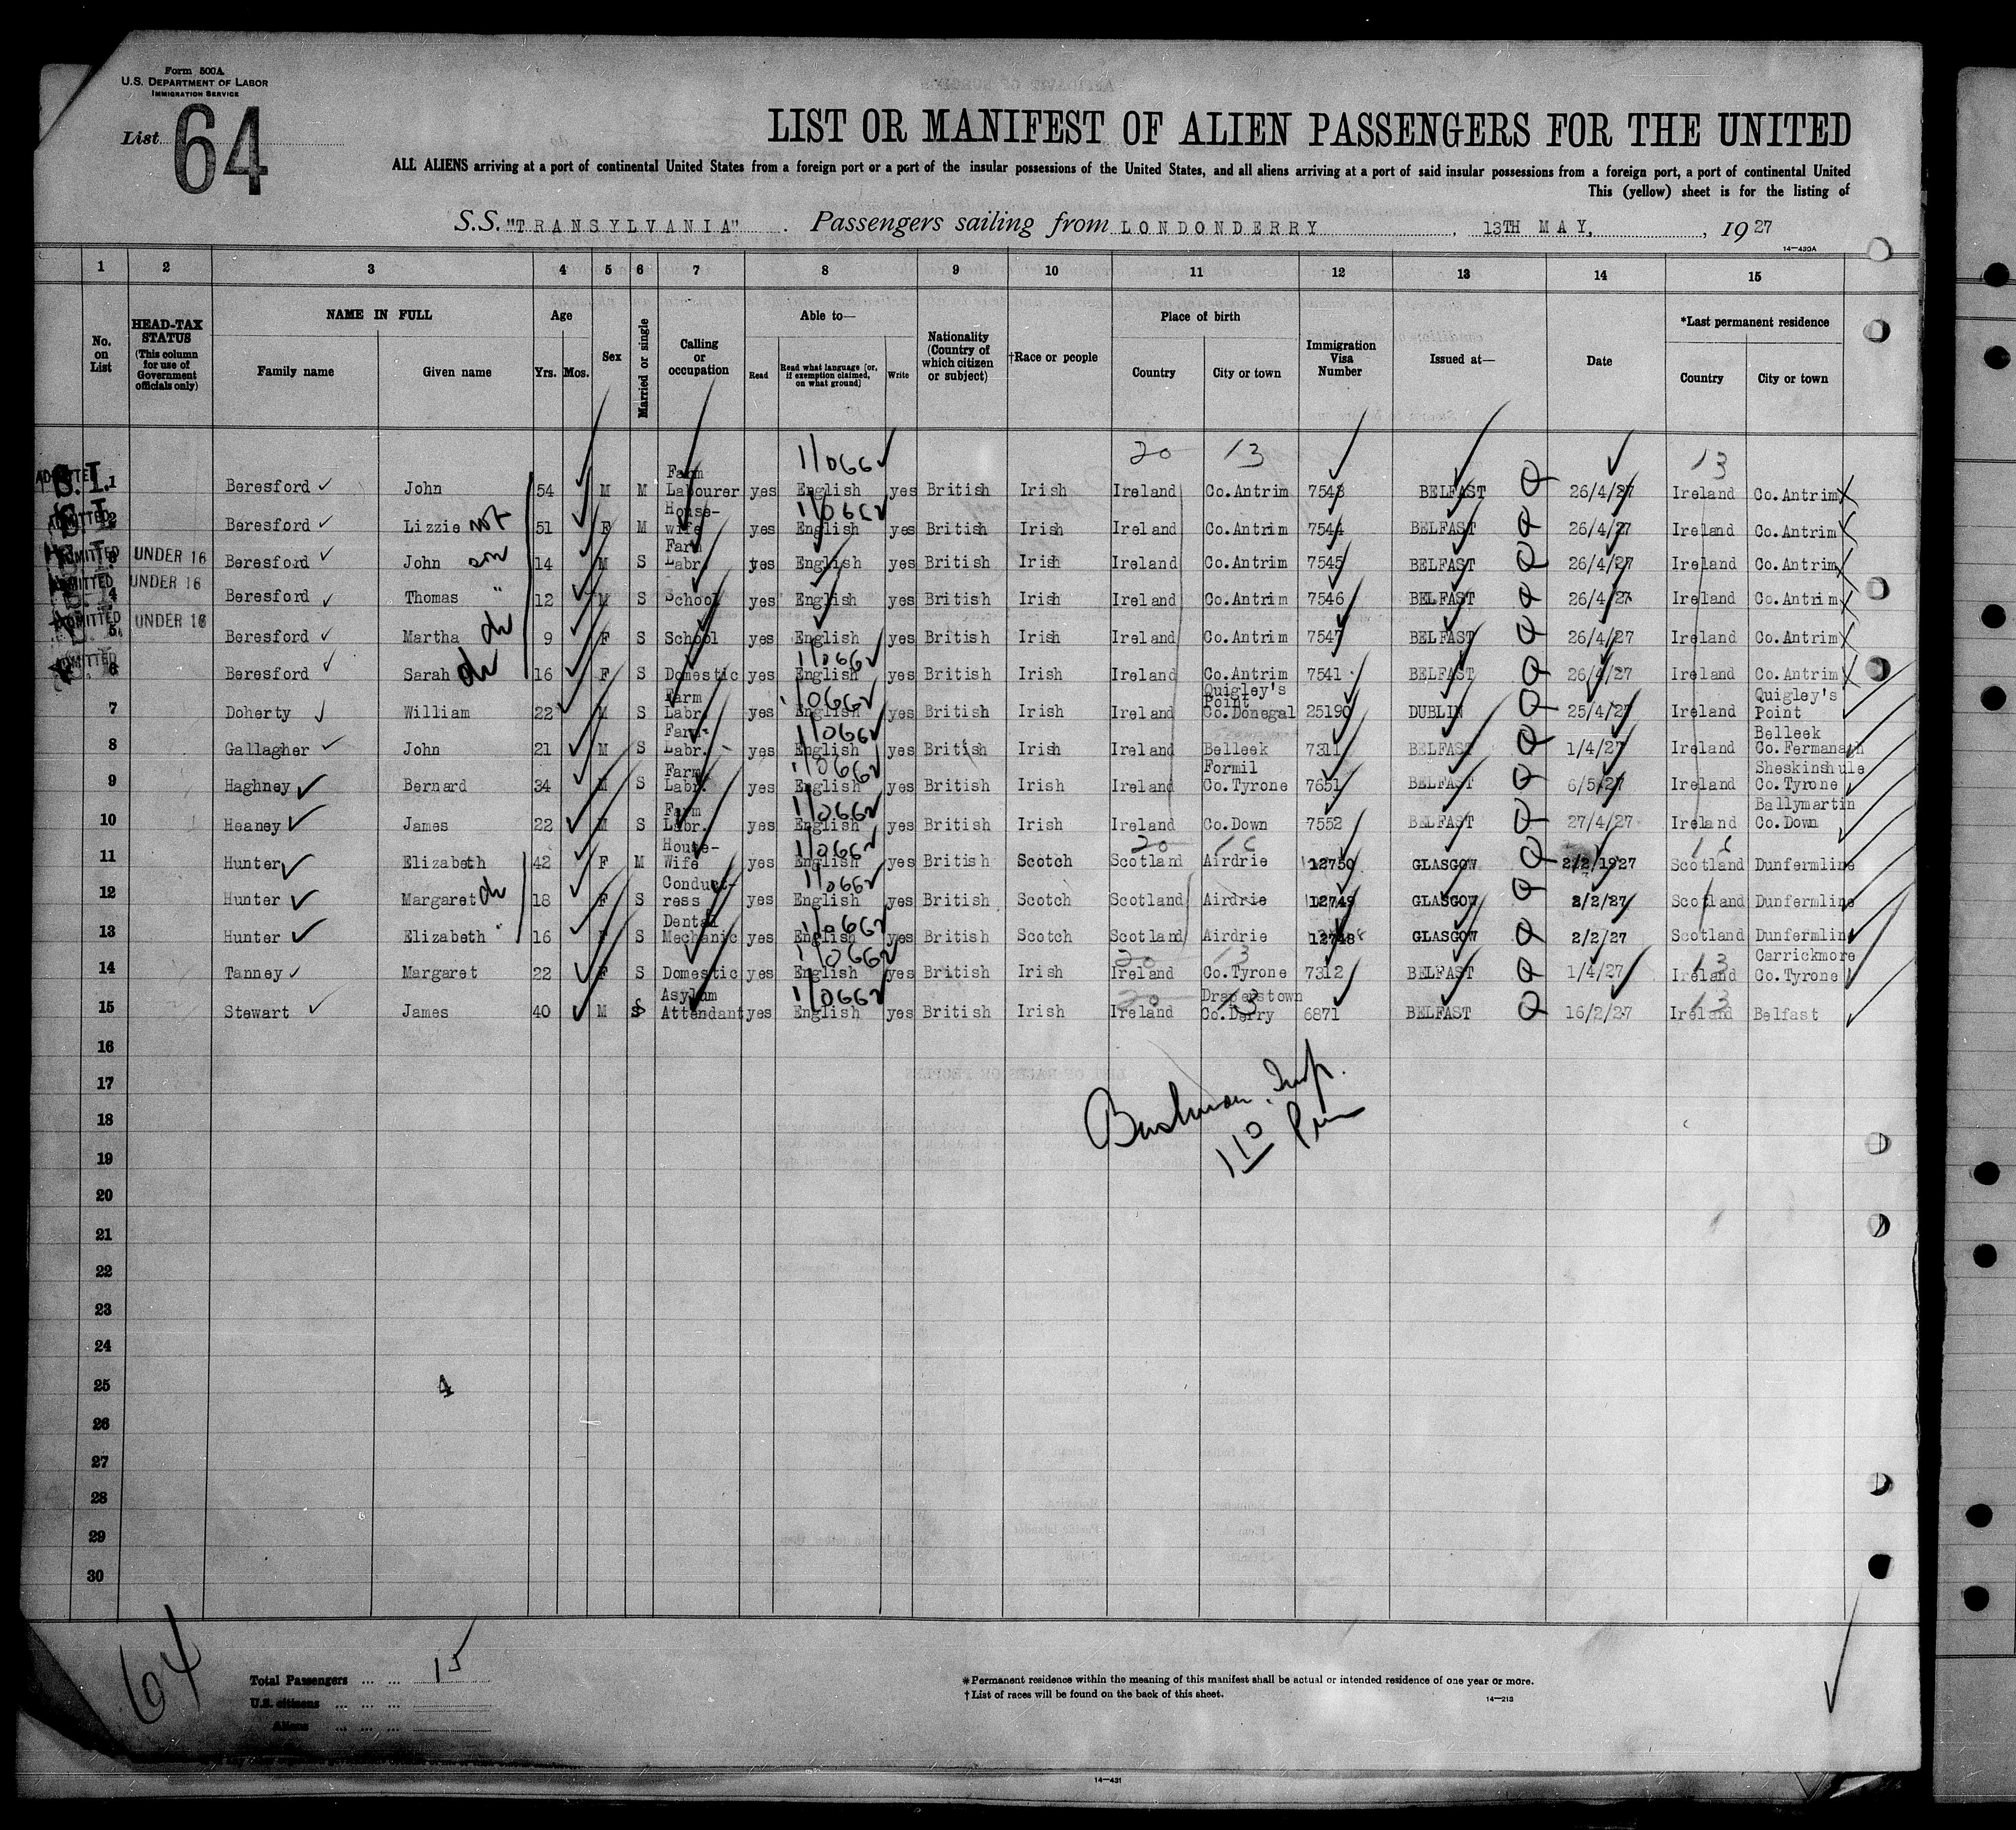 Form 500A
U.S. DEPARTMENT OF LABOR
IMMIGRATION SERVICE
List 64
LIST OR MANIFEST OF ALIEN PASSENGERS FOR THE UNITED
ALL ALIENS arriving at a port of continental United States from a foreign port or a port of the insular possessions of the United States, and all aliens arriving at a port of said insular possessions from a foreign port, a port of continental United
This (yellow) sheet is for the listing of
S.S. "TRANSYLVANIA" . Passengers sailing from LONDONDERRY , 13TH MAY, , 1927
14—430A
1 2 3 4 5 6 7 8 9 10 11 12 13 14 15
No. on List
HEAD-TAX STATUS (This column for use of Government officials only)
NAME IN FULL Family name Given name
Age Yrs. Mos.
Sex
Married or single
Calling or occupation
Able to— Read Read what language [or, if exemption claimed, on what ground] Write
Nationality (Country of which citizen or subject)
†Race or people
Place of birth Country City or town
Immigration Visa Number
Issued at—
Date
*Last permanent residence Country City or town
20 13 13
ADMITTED S.I. 1 Beresford John 54 M M Farm Labourer yes English 1/0662 yes British Irish Ireland Co.Antrim 7543 BELFAST 26/4/27 Ireland Co.Antrim
ADMITTED 2 Beresford Lizzie 51 F M House-wife yes English 1/0662 yes British Irish Ireland Co.Antrim 7544 BELFAST 26/4/27 Ireland Co.Antrim
ADMITTED 3 UNDER 16 Beresford John son 14 M S Farm Labr. yes English yes British Irish Ireland Co.Antrim 7545 BELFAST 26/4/27 Ireland Co.Antrim
ADMITTED 4 UNDER 16 Beresford Thomas " 12 M S School yes English yes British Irish Ireland Co.Antrim 7546 BELFAST 26/4/27 Ireland Co.Antrim
ADMITTED 5 UNDER 16 Beresford Martha 9 F S School yes English yes British Irish Ireland Co.Antrim 7547 BELFAST 26/4/27 Ireland Co.Antrim
ADMITTED 6 Beresford Sarah 16 F S Domestic yes English 1/0662 yes British Irish Ireland Co.Antrim 7541 BELFAST 26/4/27 Ireland Co.Antrim
7 Doherty William 22 M S Farm Labr. yes English 1/0662 yes British Irish Ireland Quigley's Point Co.Donegal 25190 DUBLIN 25/4/27 Ireland Quigley's Point
8 Gallagher John 21 M S Farm Labr. yes English 1/0662 yes British Irish Ireland Belleek 7311 BELFAST 1/4/27 Ireland Belleek Co.Fermanagh
9 Haghney Bernard 34 M S Farm Labr. yes English 1/0662 yes British Irish Ireland Formil Co.Tyrone 7651 BELFAST 6/5/27 Ireland Sheskinshule Co.Tyrone
10 Heaney James 22 M S Farm Labr. yes English 1/0662 yes British Irish Ireland Co.Down 7552 BELFAST 27/4/27 Ireland Ballymartin Co.Down
11 Hunter Elizabeth 42 F M House-Wife yes English 1/0662 yes British Scotch Scotland Airdrie 12750 GLASGOW 2/2/1927 Scotland Dunfermline
12 Hunter Margaret 18 F S Conduct-ress yes English 1/0662 yes British Scotch Scotland Airdrie 12749 GLASGOW 2/2/27 Scotland Dunfermline
13 Hunter Elizabeth 16 F S Dental Mechanic yes English 1/0662 yes British Scotch Scotland Airdrie 12748 GLASGOW 2/2/27 Scotland Dunfermline
14 Tanney Margaret 22 F S Domestic yes English 1/0662 yes British Irish Ireland Co.Tyrone 7312 BELFAST 1/4/27 Ireland Carrickmore Co.Tyrone
15 Stewart James 40 M S Asylum Attendant yes English 1/0662 yes British Irish Ireland Draperstown Co.Derry 6871 BELFAST 16/2/27 Ireland Belfast
16
17
18
19
20
21
22
23
24
25 4
26
27
28
29
30
64
Total Passengers ... ... 15
U.S. citizens ... ... ...
Aliens ... ... ...
*Permanent residence within the meaning of this manifest shall be actual or intended residence of one year or more.
†List of races will be found on the back of this sheet.
14—213
14—431